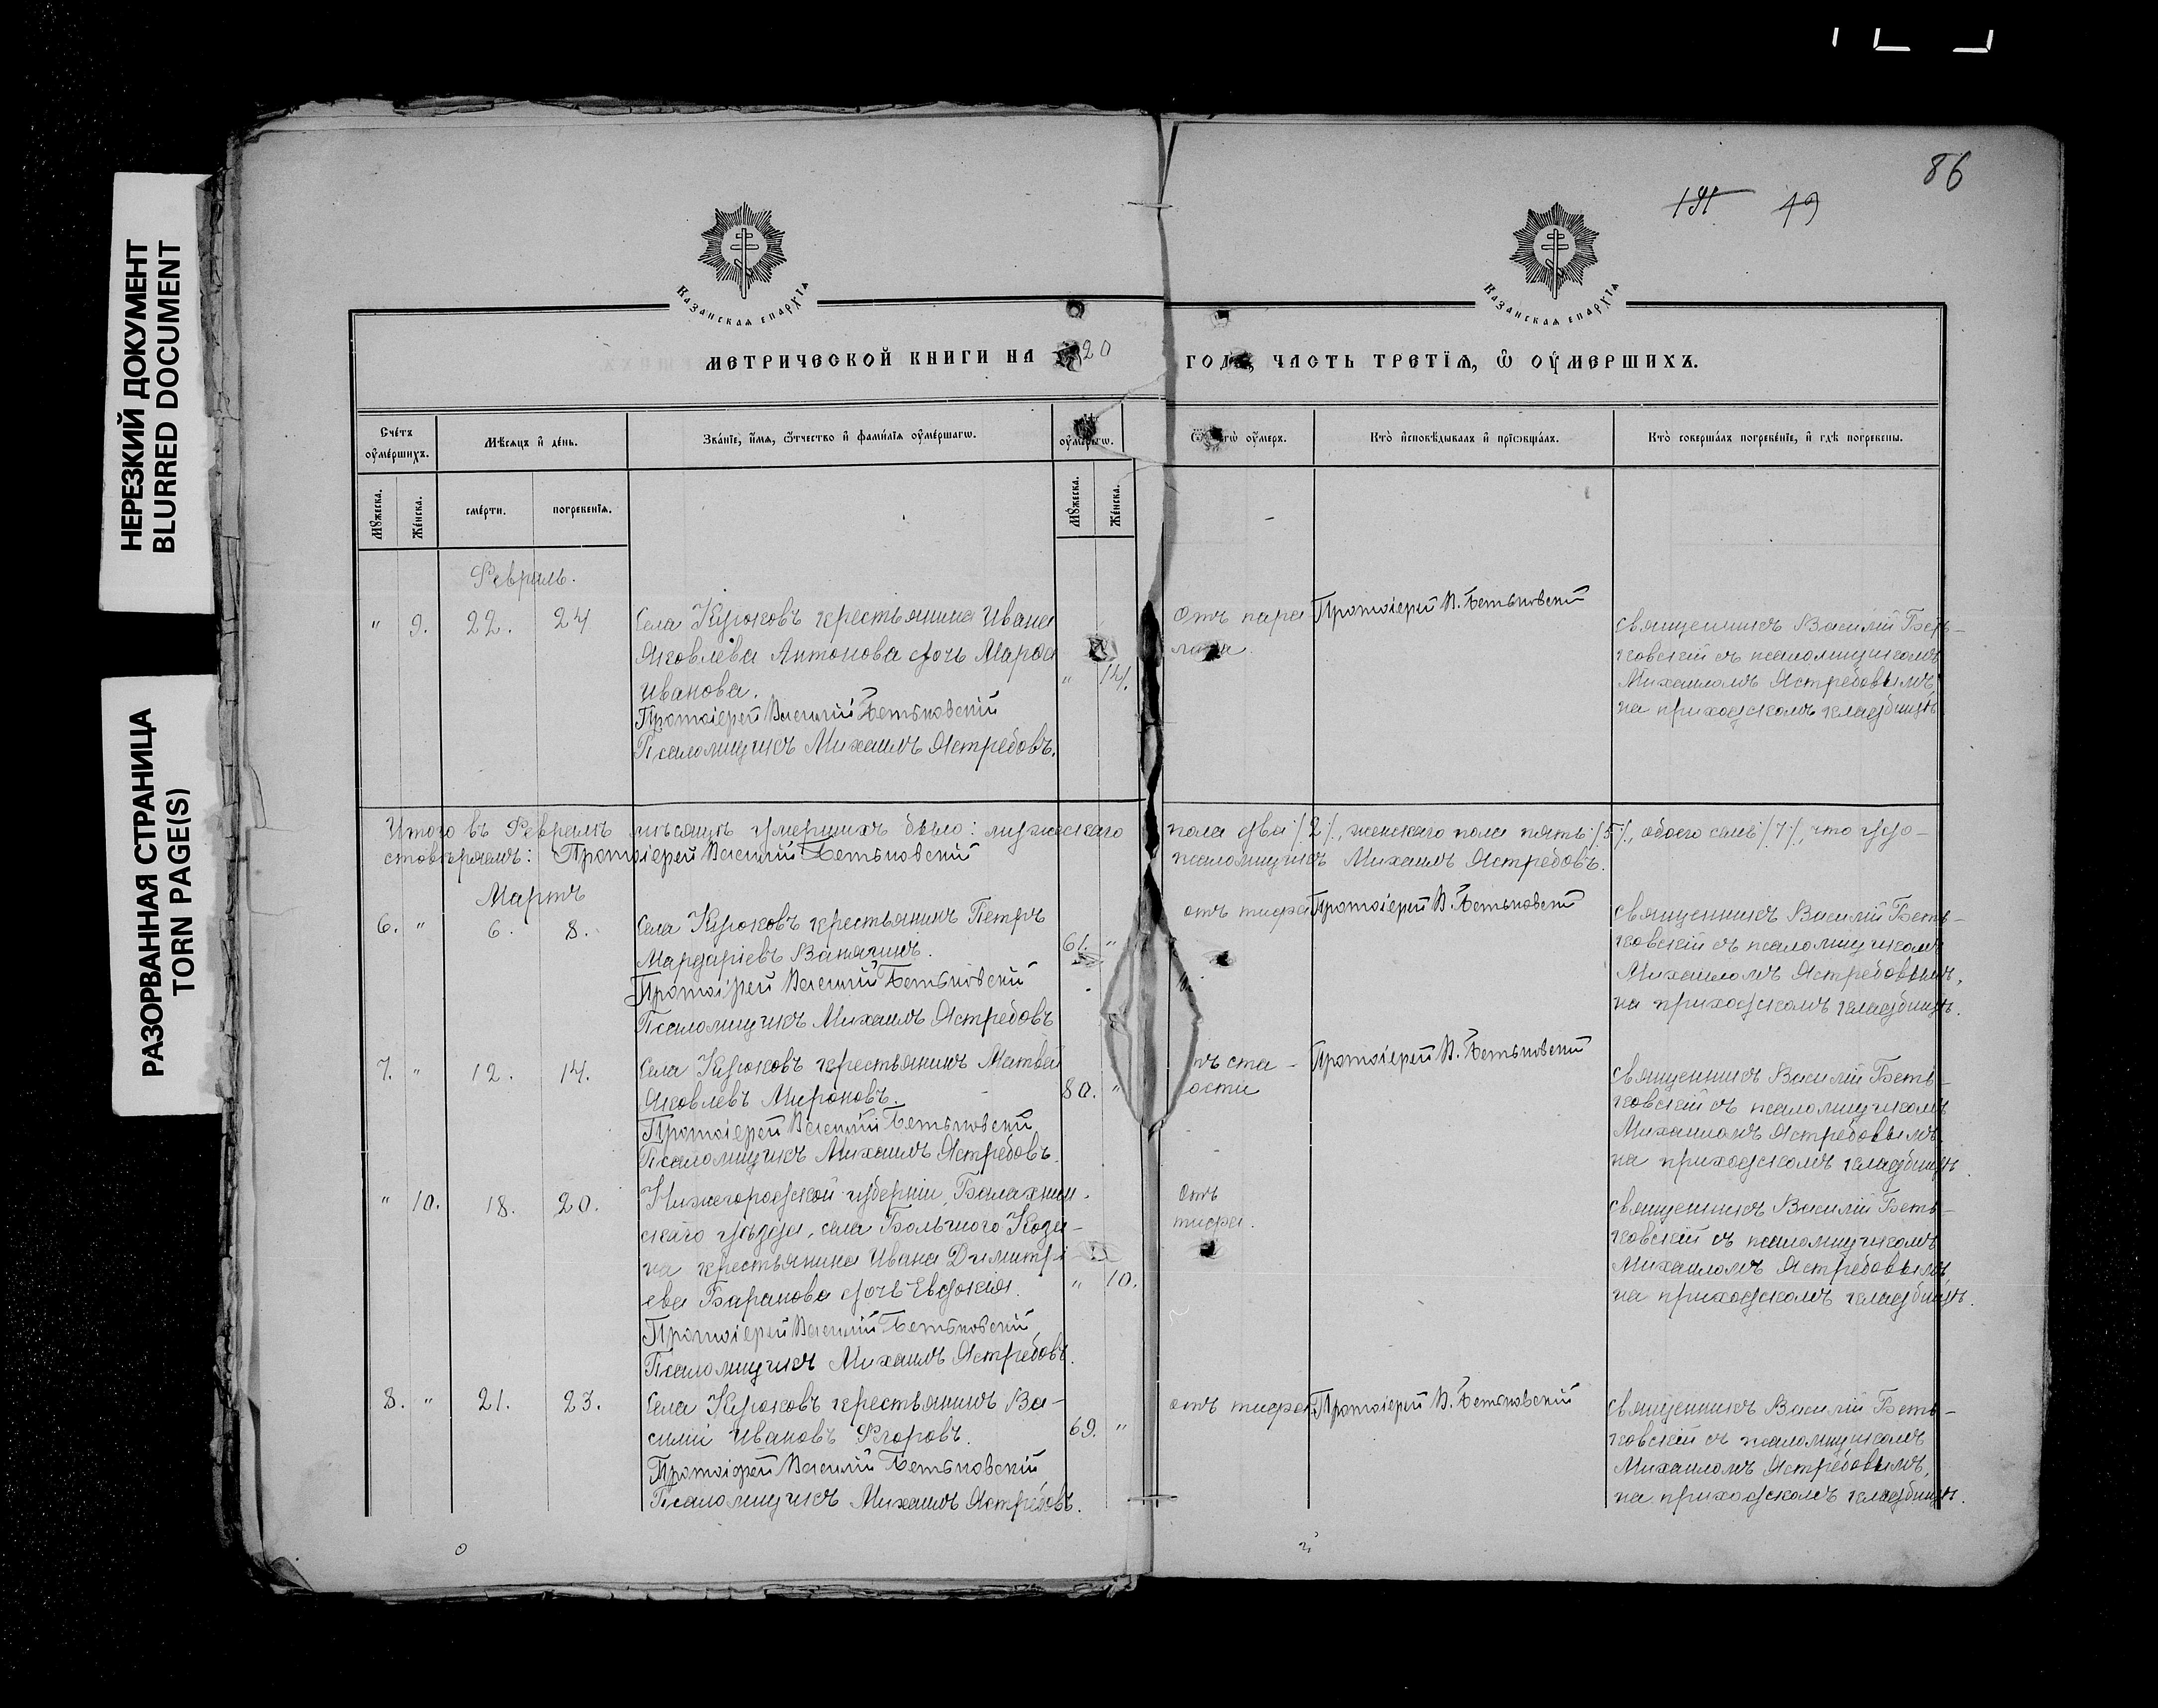 НЕРЕЗКИЙ ДОКУМЕНТ
BLURRED DOCUMENT
РАЗОРВАННАЯ СТРАНИЦА
TORN PAGE(S)
86
19
Казанская епархїѧ
Казанская епархїѧ
МЕТРИЧЕСКОЙ КНИГИ НА 20 ГОДЪ, ЧАСТЬ ТРЕТЇѦ, Ѿ ОУМЕРШИХЪ.
Счетъ оумершихъ.
Мѣсяцъ и день.
Званїе, имѧ, ѿчество и фамилїѧ оумершагѡ.
оумершагѡ.
Ѿ чегѡ оумеръ.
Кто исповѣдывалъ и прїобщалъ.
Кто совершалъ погребенїе, и гдѣ погребены.
Мꙋжеска.
Женска.
смерти.
погребенїѧ.
Мꙋжеска.
Женска.
Февраль.
" 9. 22. 24 Села Кураковъ крестьянина Ивана
Яковлева Антонова дочь Марѳа
Иванова. " 14.
Протоіерей Василій Бетьковскій
Псаломщикъ Михаилъ Ястребовъ.
Отъ пара
лича.
Протоіерей В. Бетьковскій
Священникъ Василій Беть-
ковскій съ псаломщикомъ
Михаиломъ Ястребовымъ,
на приходскомъ кладбищѣ
Итого въ Февралѣ мѣсяцѣ умершихъ было: мужескаго пола два /2/, женскаго пола пять /5/, обоего семь /7/, что удо-
стовѣряемъ: Протоіерей Василій Бетьковскій псаломщикъ Михаилъ Ястребовъ.
Мартъ
6. " 6. 8. Села Кураковъ крестьянинъ Петръ
Мардаріевъ 61. "
Протоіерей Василій Бетьковскій
Псаломщикъ Михаилъ Ястребовъ
отъ тифа
Протоіерей В. Бетьковскій
Священникъ Василій Беть-
ковскій съ псаломщикомъ
Михаиломъ Ястребовымъ,
на приходскомъ кладбищѣ.
7. " 12. 14. Села Кураковъ крестьянинъ Матвей
Яковлевъ Мироновъ. 80. "
Протоіерей Василій Бетьковскій
Псаломщикъ Михаилъ Ястребовъ.
тъ ста-
ости
Протоіерей В. Бетьковскій
Священникъ Василій Беть-
ковскій съ псаломщикомъ
Михаиломъ Ястребовымъ
на приходскомъ кладбищѣ.
" 10. 18. 20. Нижегородской губерніи, Балахнин-
скаго уѣзда, села Большого Кози-
на крестьянина Ивана Димитрі-
ева Баранова дочь Евдокія. " 10.
Протоіерей Василій Бетьковскій
Псаломщикъ Михаилъ Ястребовъ.
Отъ
тифа.
Священникъ Василій Беть-
ковскій съ псаломщикомъ
Михаиломъ Ястребовымъ,
на приходскомъ кладбищѣ.
8. " 21. 23. Села Кураковъ крестьянинъ Ва-
силій Ивановъ Егоровъ. 69. "
Протоіерей Василій Бетьковскій
Псаломщикъ Михаилъ Ястребовъ.
отъ тифа.
Протоіерей В. Бетьковскій
Священникъ Василій Беть-
ковскій съ псаломщикомъ
Михаиломъ Ястребовымъ,
на приходскомъ кладбищѣ.